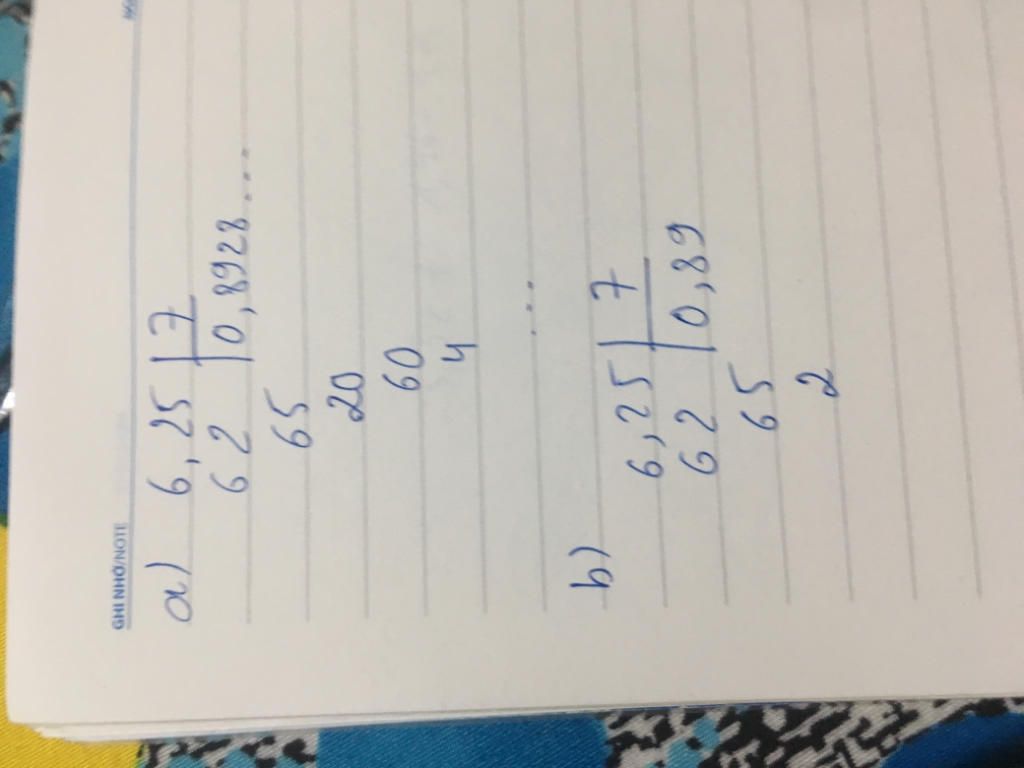 GHI NHỚ/NOTE
a) 6,25 | 7
6 2 | 0,8928...
65
20
60
4
...
b) 6,25 | 7
6 2 | 0,89
65
2